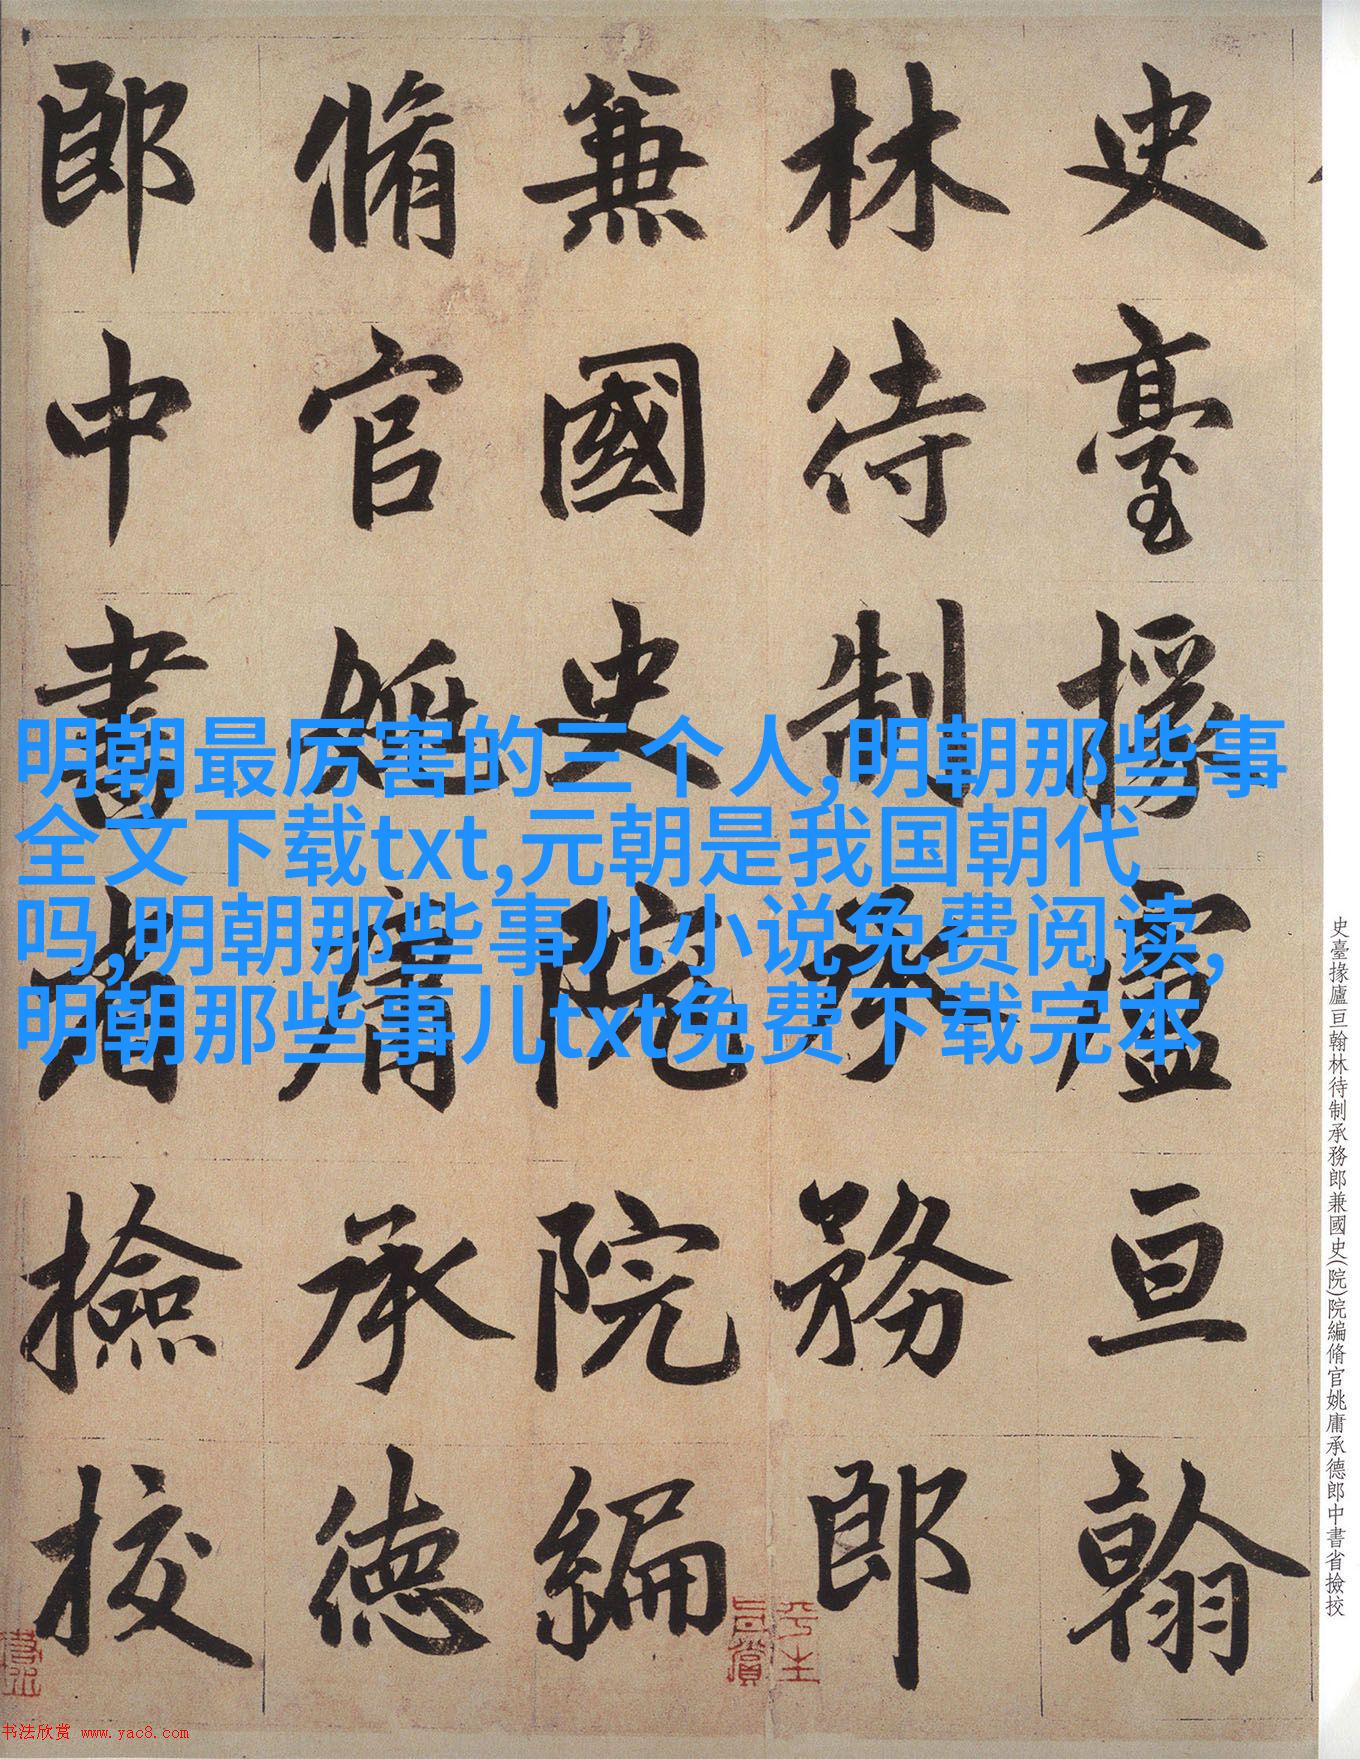 史臺掾廬亘翰
林待制承務郎
兼國史院院編
脩官姚庸承德
郎中書省撿挍
明朝最厉害的三个人,明朝那些事
全文下载txt,元朝是我国朝代
吗,明朝那些事儿小说免费阅读,
明朝那些事儿txt免费下载完本
史臺掾廬亘翰林待制承務郎兼國史(院)院編脩官姚庸承德郎中書省撿挍
平生
真賞
书法欣赏 www.yac8.com